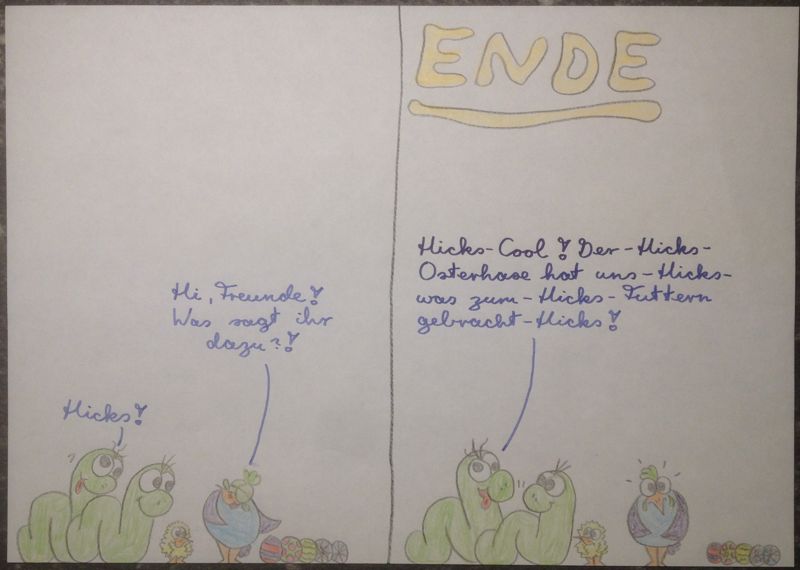 Hicks!
Hi, Freunde!
Was sagt ihr
dazu?!
ENDE
Hicks-Cool! Der-Hicks-
Osterhase hat uns-Hicks-
was zum-Hicks-Futtern
gebracht-Hicks!